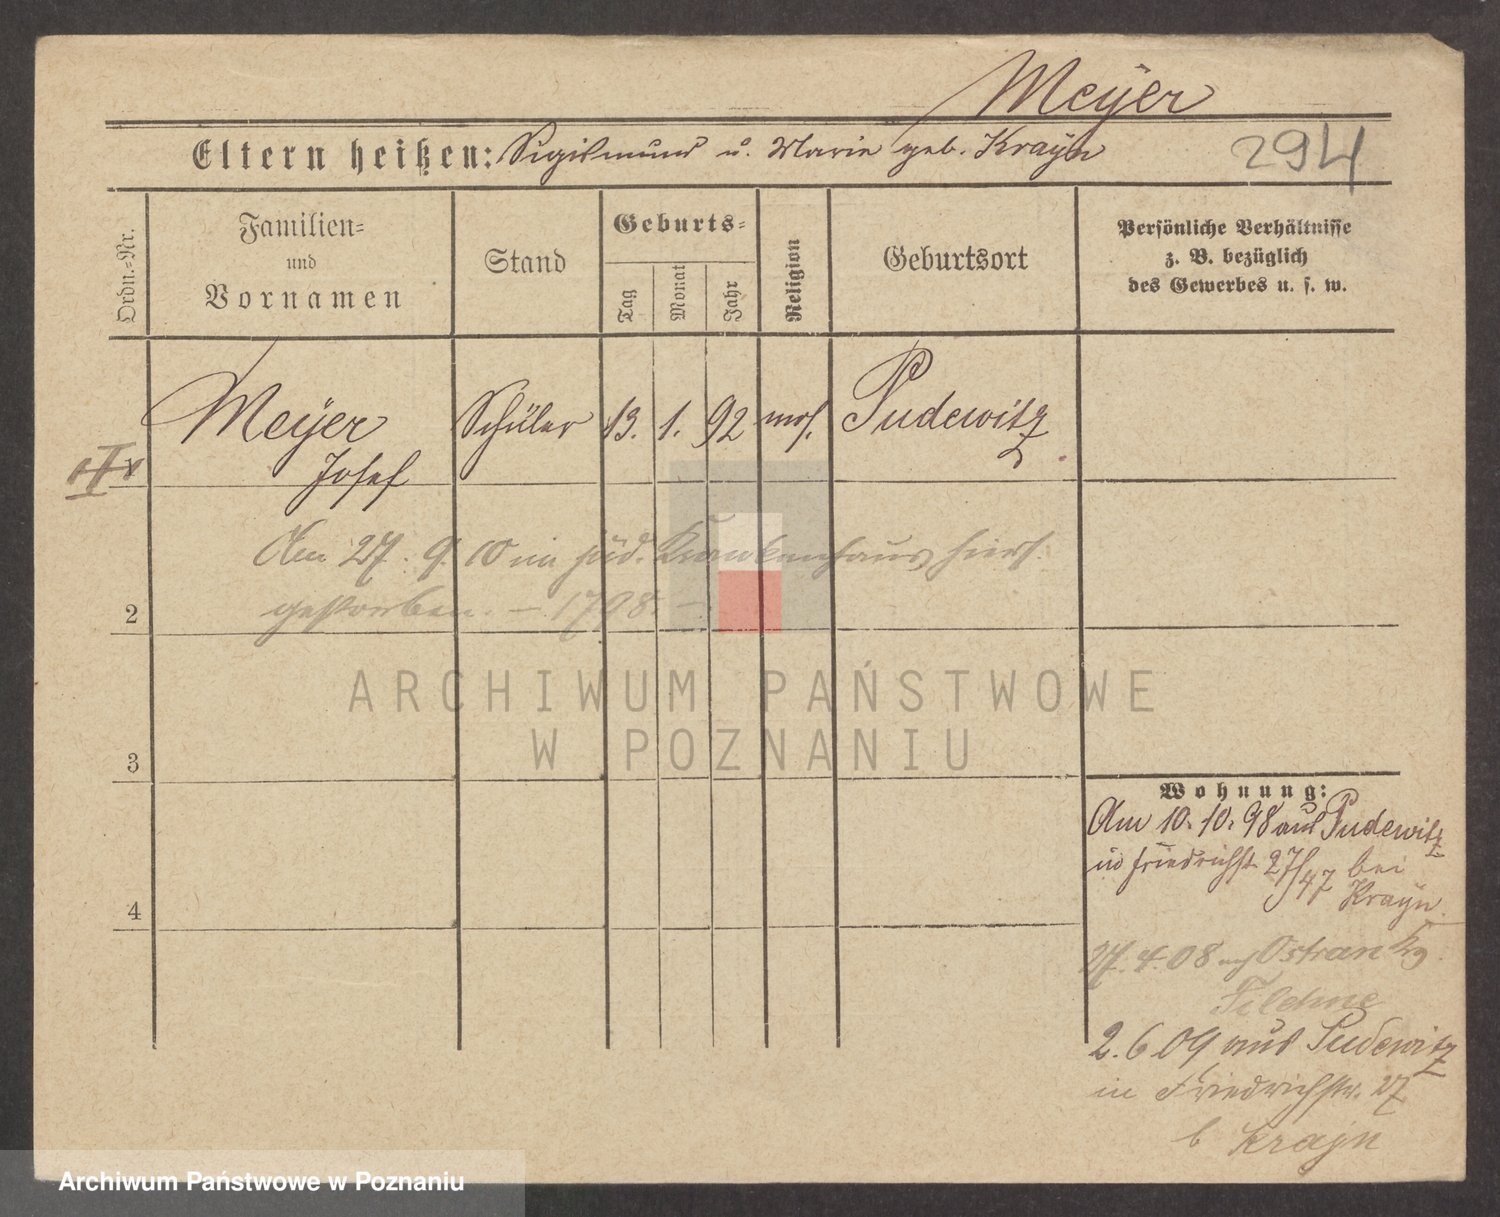 Meyer
Eltern heißen: Sigismund u. Marie geb. Krayn
294
Ordn.-Nr.
Familien-
und
Vornamen
Stand
Geburts-
Tag
Monat
Jahr
Religion
Geburtsort
Persönliche Verhältnisse
z. B. bezüglich
des Gewerbes u. s. w.
Meyer Schüler 13. 1. 92 mos. Pudewitz
Josef
Am 27. 9. 10 im jüd. Krankenhaus hiers.
gestorben. — 1798. —
2
3
4
ARCHIWUM PAŃSTWOWE
W POZNANIU
Wohnung:
Am 10. 10. 98 aus Pudewitz
in Friedrichstr. 27/47 bei
Krayn
27. 4. 08
2. 6 09 aus Pudewitz
in Friedrichstr. 27
b Krayn
Archiwum Państwowe w Poznaniu